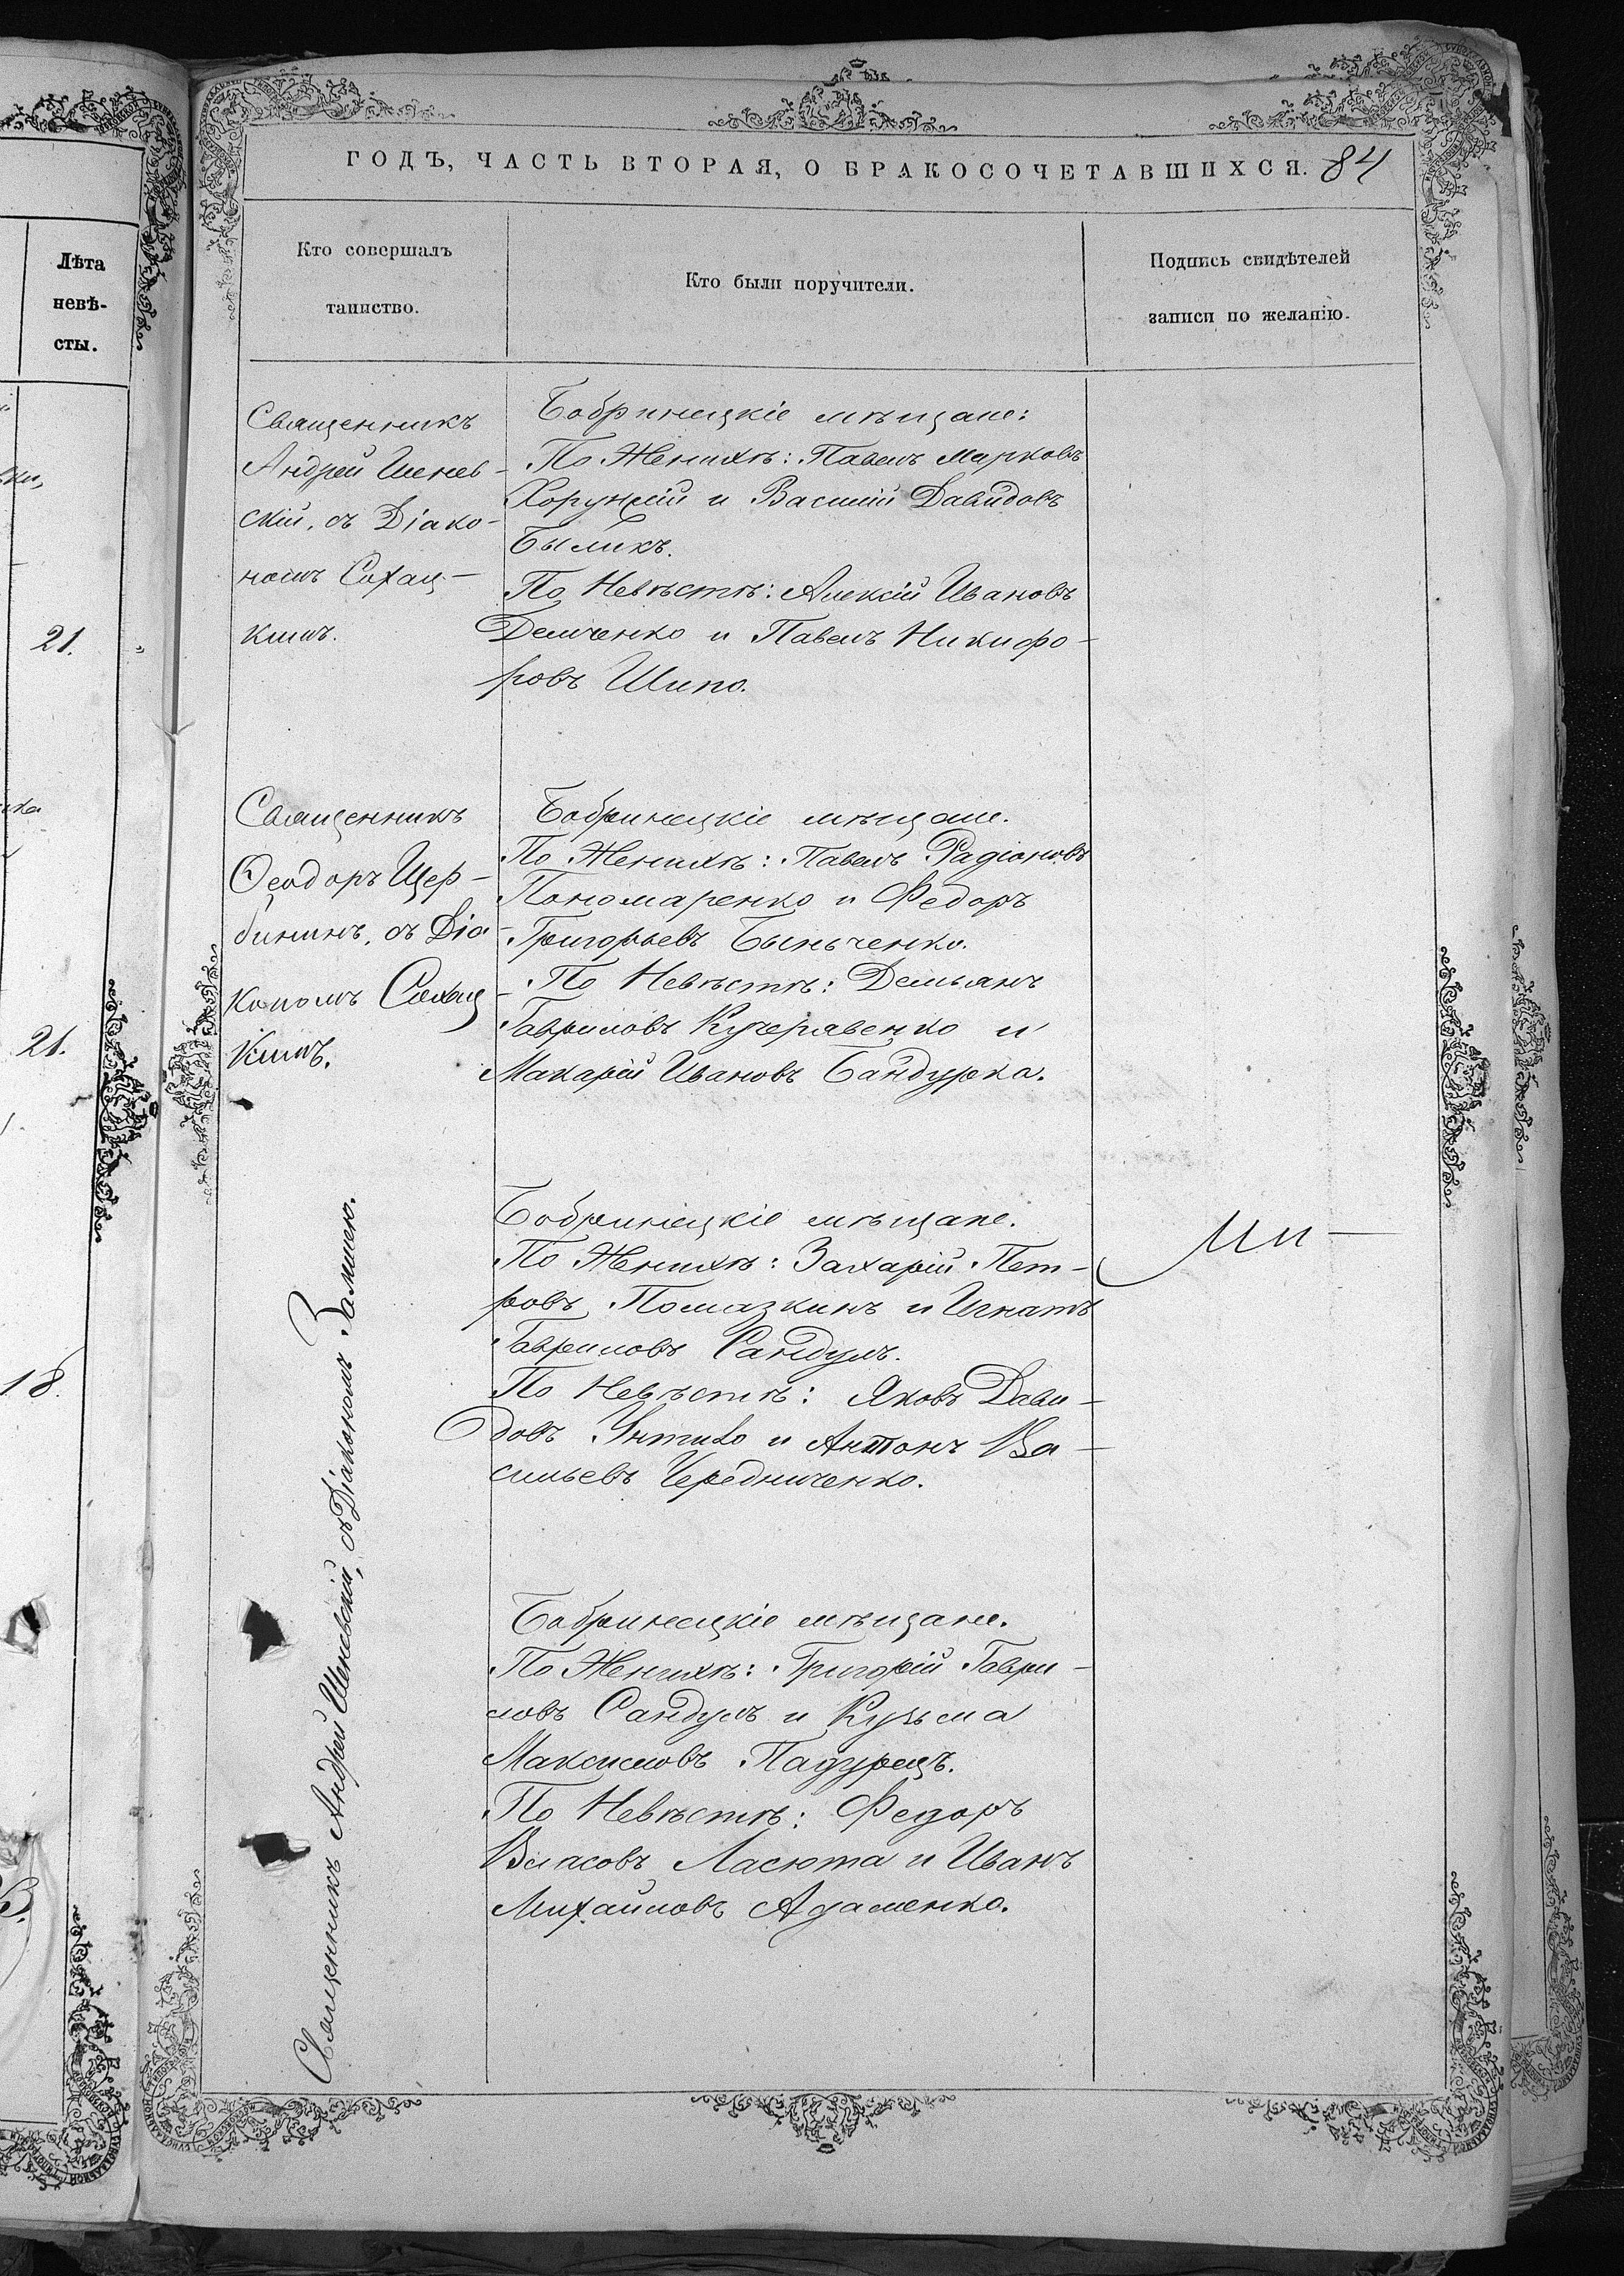 ГОДЪ, ЧАСТЬ ВТОРАЯ, О БРАКОСОЧЕТАВШИХСЯ. 84
Лѣта
невѣ-
сты.
21.
21.
18.
Кто совершалъ
таинство.
Кто были поручители.
Подпись свидѣтелей
записи по желанію.
Священникъ
Андрей Шенев-
скій, съ Діако-
номъ Сохац-
кимъ.
Бобринецкіе мѣщане:
По Женихѣ: Павелъ Марковъ
Хорунжій и Василій Давидовъ
Быликъ.
По Невѣстѣ: Алексій Ивановъ
Демченко и Павелъ Никифо-
ровъ Шило.
Священникъ
Ѳеодоръ Щер-
бининъ, съ Діа-
кономъ Сохац-
кимъ.
Бобринецкіе мѣщане.
По Женихѣ: Павелъ Радіоновъ
Пономаренко и Федоръ
Григорьевъ Быньченко.
По Невѣстѣ: Демьянъ
Гавриловъ Кучеравенко и
Макарій Ивановъ Бандурка.
Священникъ Андрей Шеневскій, съ Діакономъ
Бобринецкіе мѣщане.
По Женихѣ: Захарій Пет-
ровъ Помазкинъ и Игнатъ
Гавриловъ Сандулъ.
По Невѣстѣ: Яковъ Дави-
довъ и Антонъ Ва-
сильевъ Чередниченко.
Бобринецкіе мѣщане.
По Женихѣ: Григорій Гаври-
ловъ Сандулъ и Кузьма
Максимовъ Падурецъ.
По Невѣстѣ: Федоръ
Власовъ Ласюта и Иванъ
Михайловъ Адаменко.